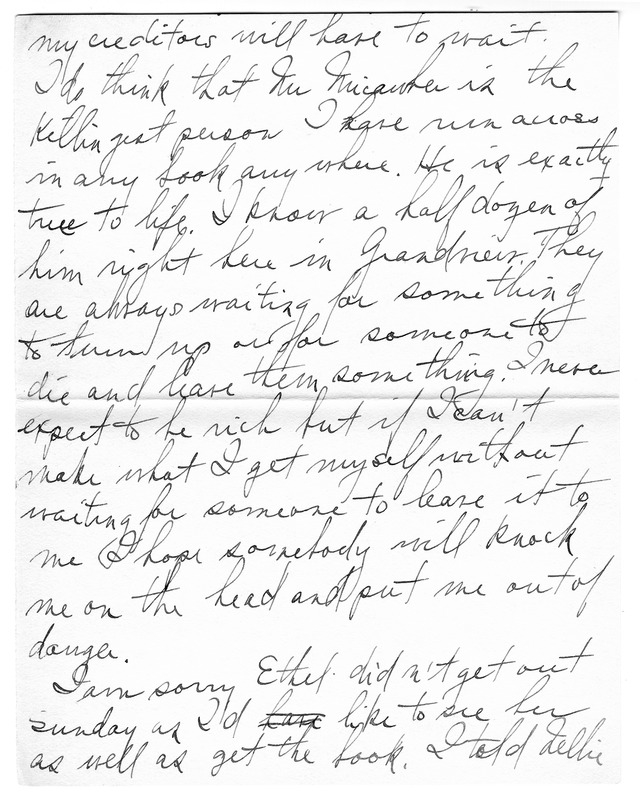 my creditors will have to wait.
I do think that Mr Micawber is the
killingest person I have run across
in any book anywhere. He is exactly
true to life. I know a half dozen of
him right here in Grandview. They
are always waiting for something
to turn up or for someone to
die and leave them something. I never
expect to be rich but if I can't
make what I get myself without
waiting for someone to leave it to
me I hope somebody will knock
me on the head and put me out of
danger.
I am sorry Ethel didn't get out
Sunday as I'd have like to see her
as well as get the book. I told Nellie